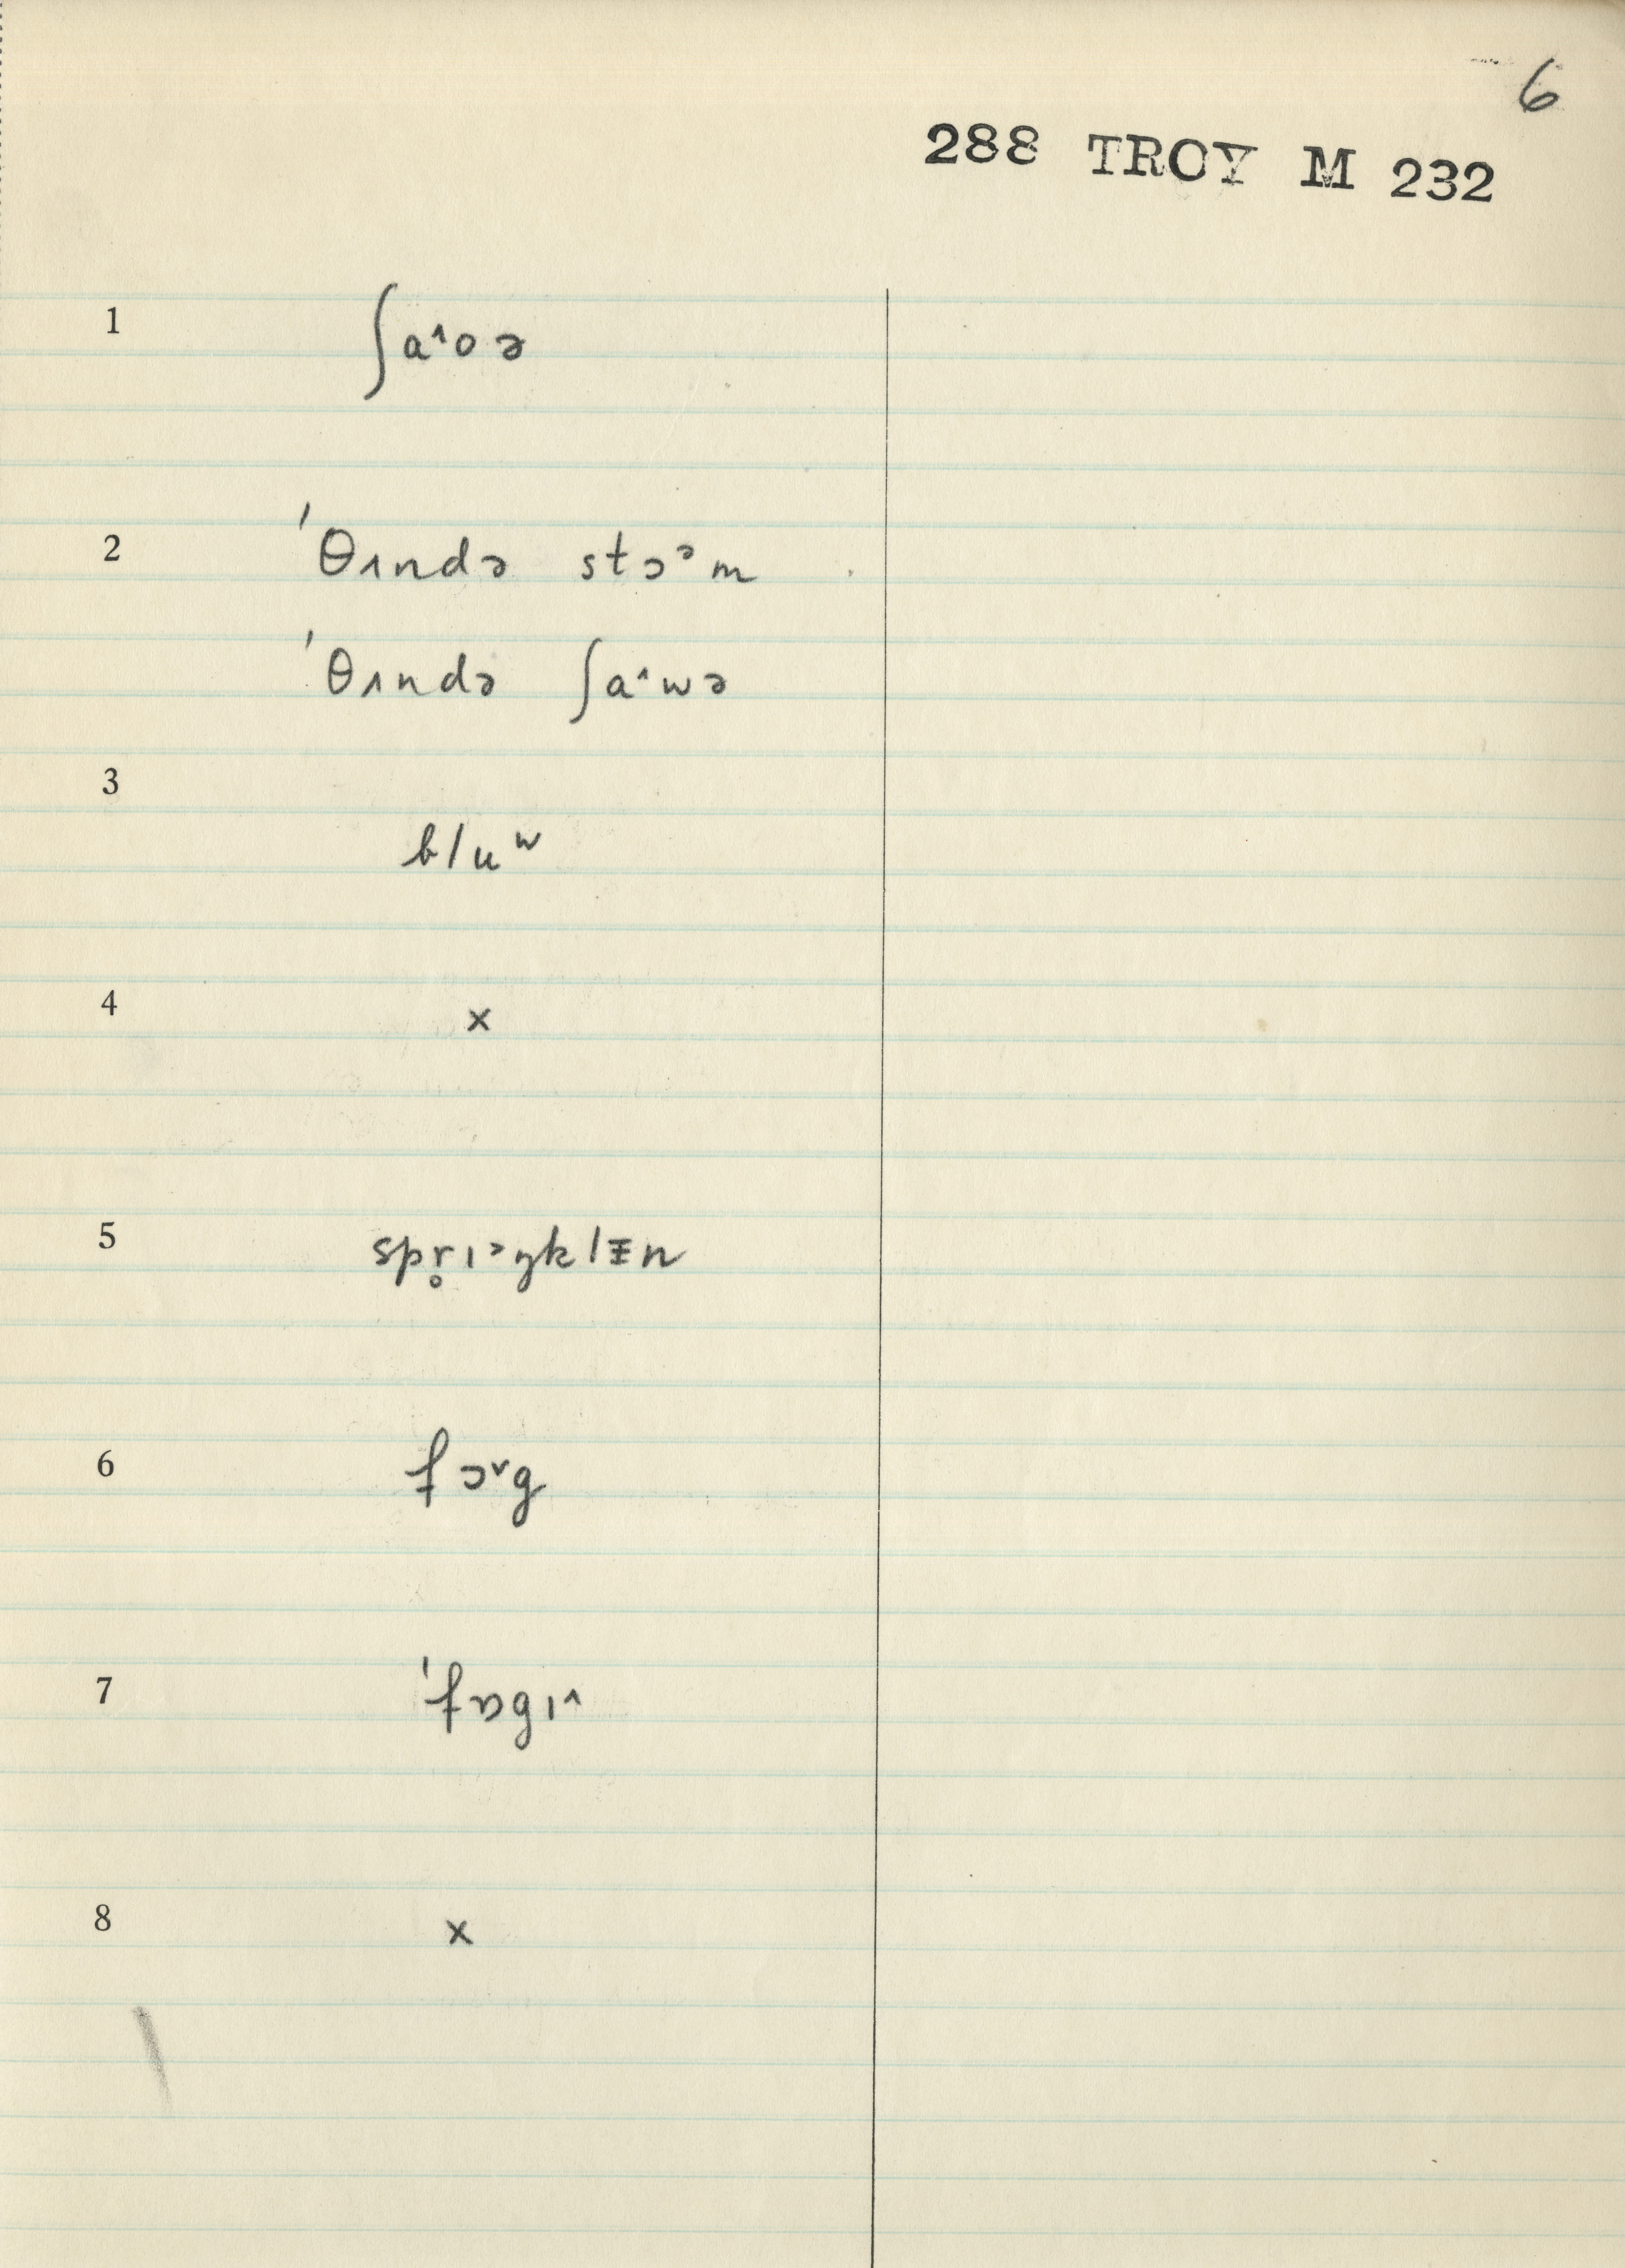 6
288 TROY M 232
1 ʃa˄oə
2 ˈθʌndə stɔᵊm
ˈθʌndə ʃa˄wə
3
bluʷ
4 x
5 spr̥ɪ˃ŋklɪ̵n
6 fɔ˅g
7 ˈfɒgɪ˄
8 x